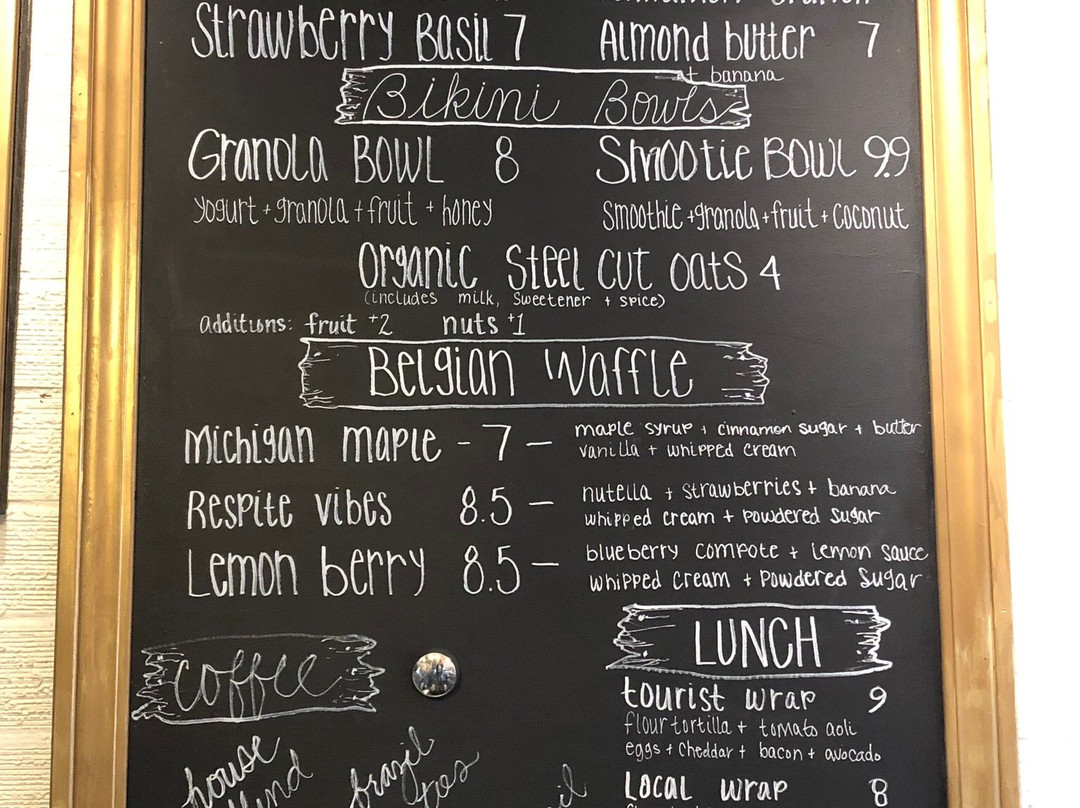 Strawberry Basil 7
Almond butter 7
+ banana
Bikini Bowls
Granola Bowl 8
yogurt + granola + fruit + honey
Smootie Bowl 9.9
Smoothie + granola + fruit + coconut
Organic Steel cut oats 4
(includes milk, sweetener + spice)
additions: fruit +2 nuts +1
Belgian Waffle
Michigan maple - 7 - maple syrup + cinnamon sugar + butter
vanilla + whipped cream
Respite vibes 8.5 - nutella + strawberries + banana
whipped cream + powdered sugar
Lemon berry 8.5 - blueberry compote + lemon sauce
whipped cream + powdered sugar
Coffee
house
brazil
LUNCH
tourist wrap 9
flour tortilla + tomato aoli
eggs + cheddar + bacon + avocado
Local wrap 8